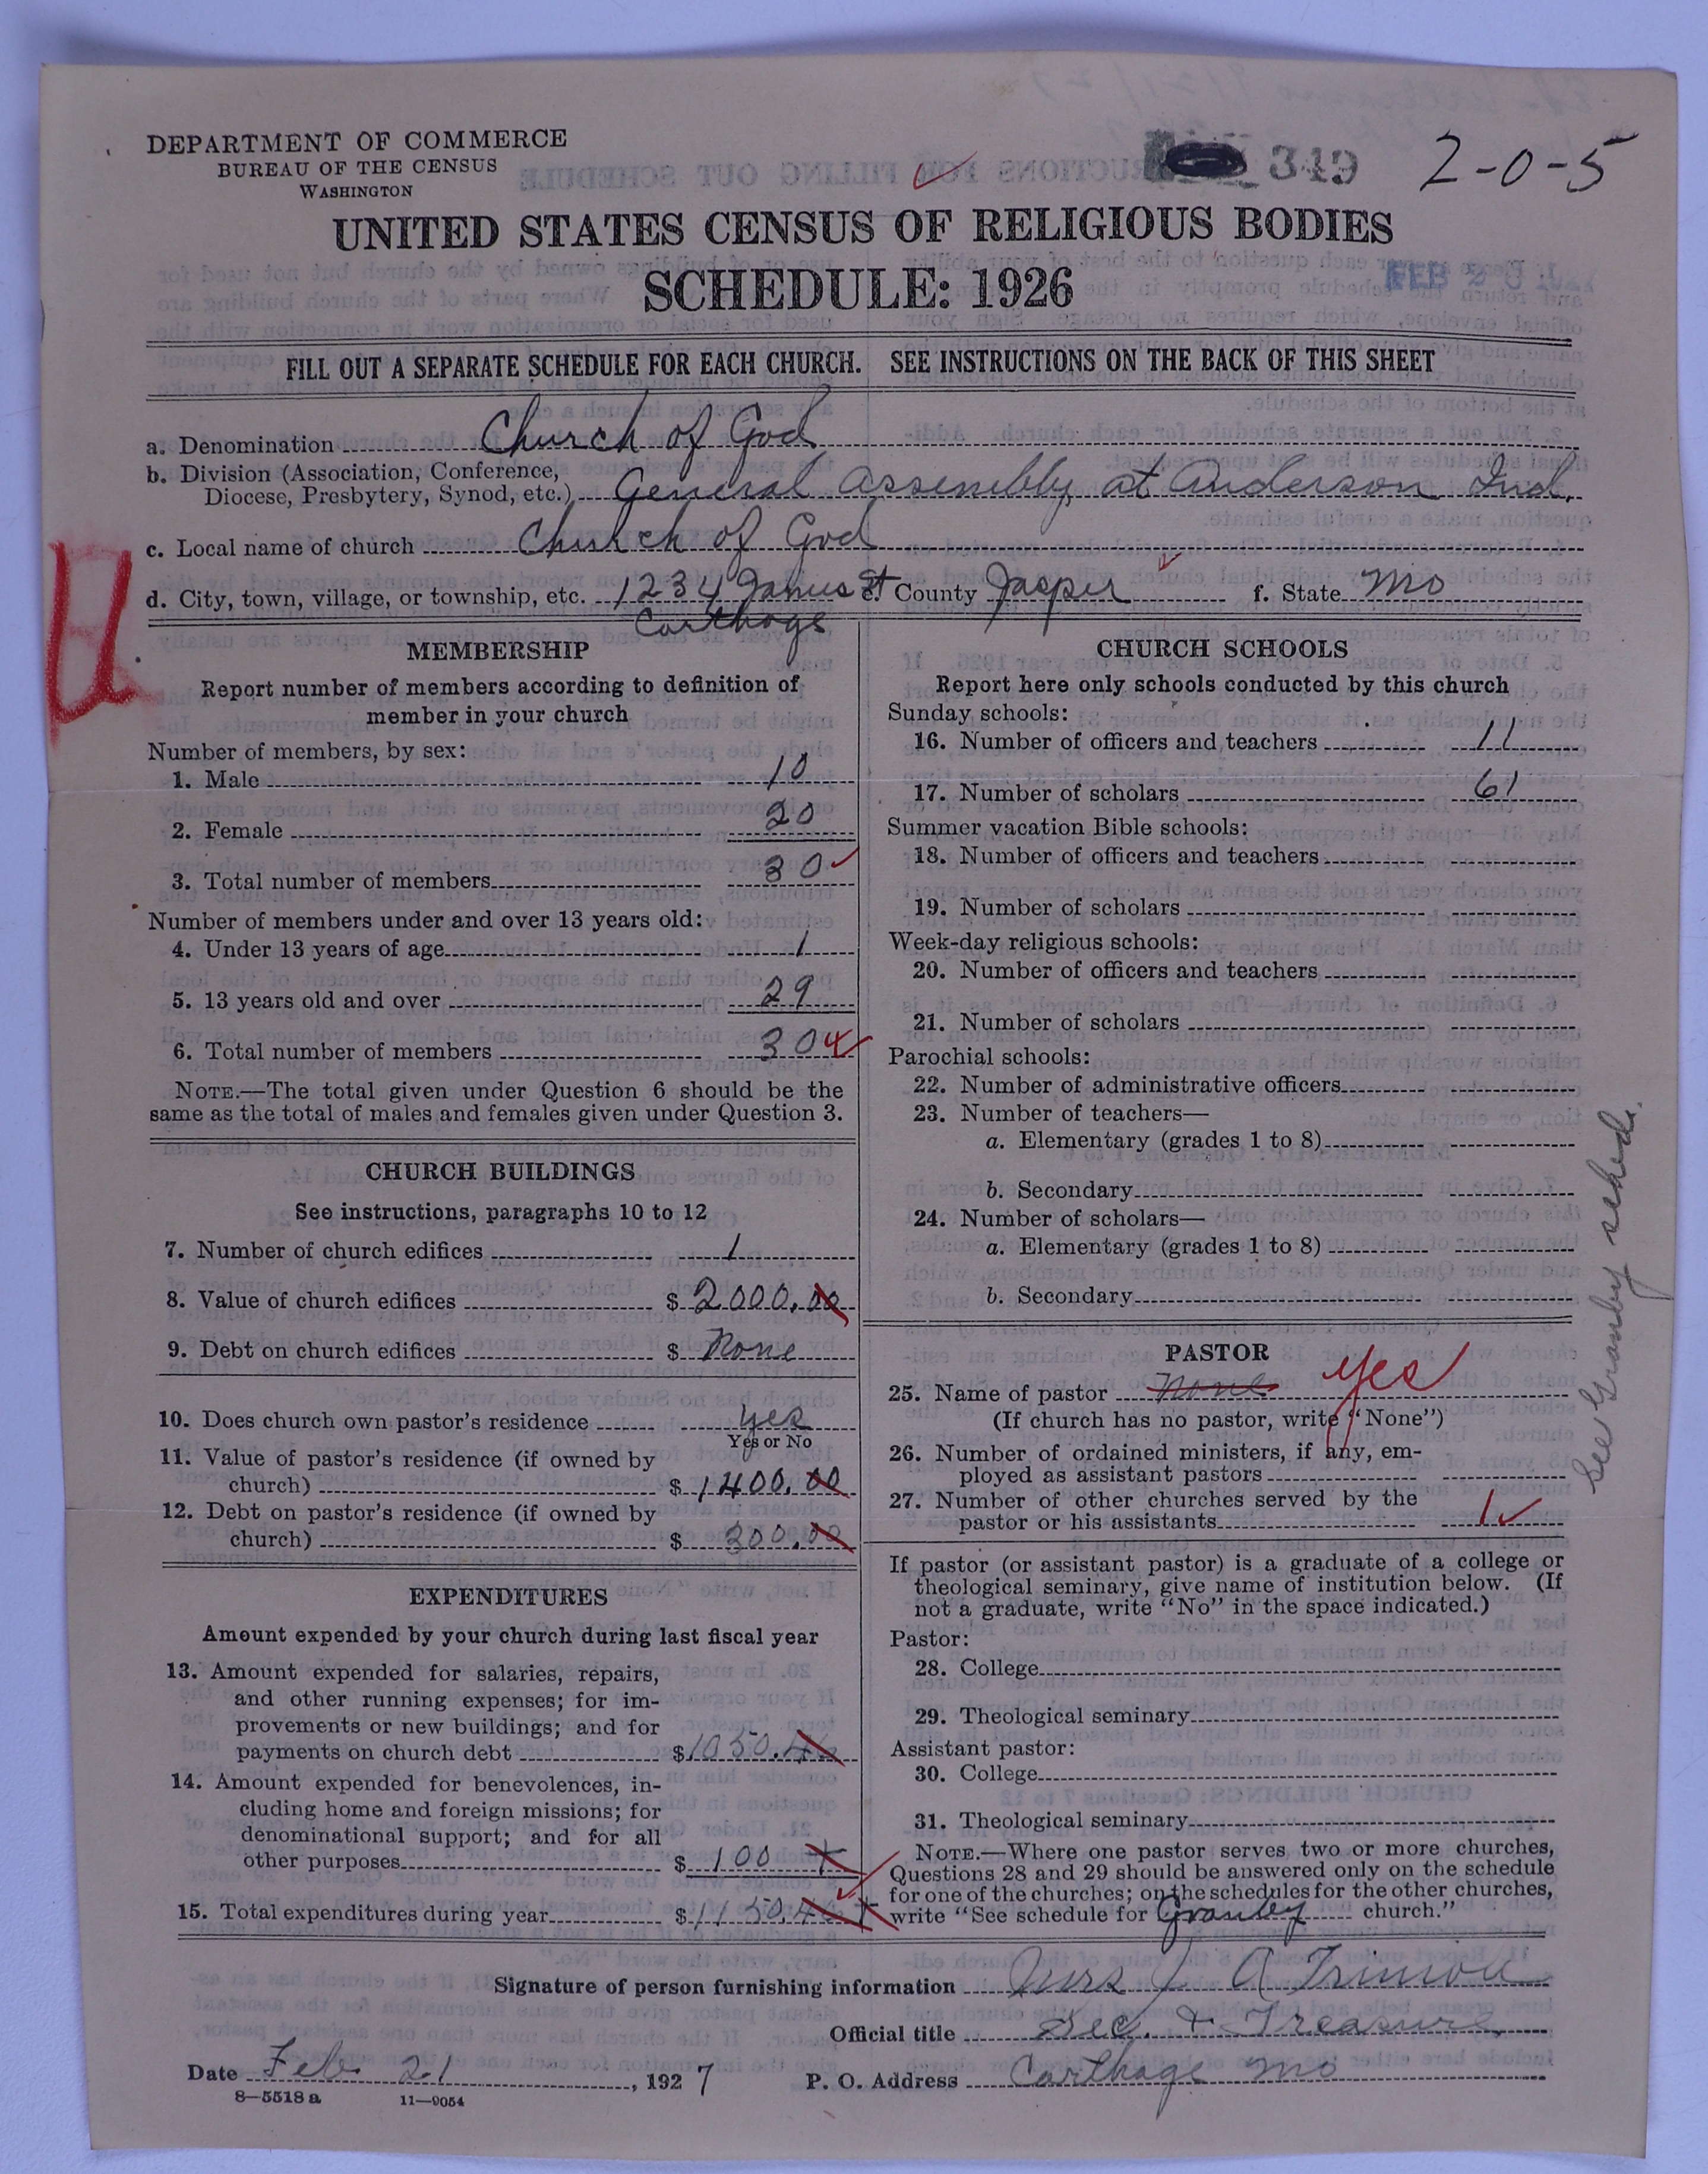 DEPARTMENT OF COMMERCE
BUREAU OF THE CENSUS
WASHINGTON
349
2-0-5
UNITED STATES CENSUS OF RELIGIOUS BODIES
SCHEDULE: 1926
FEB 2
FILL OUT A SEPARATE SCHEDULE FOR EACH CHURCH. SEE INSTRUCTIONS ON THE BACK OF THIS SHEET
a. Denomination Church of God
b. Division (Association, Conference,
Diocese, Presbytery, Synod, etc.) General Assembly at Anderson Ind.
c. Local name of church Church of God
d. City, town, village, or township, etc. 1234 St e. County Jasper f. State Mo
Carthage
MEMBERSHIP
Report number of members according to definition of
member in your church
Number of members, by sex:
1. Male 10
2. Female 20
3. Total number of members 30
Number of members under and over 13 years old:
4. Under 13 years of age 1
5. 13 years old and over 29
6. Total number of members 30
NOTE.—The total given under Question 6 should be the
same as the total of males and females given under Question 3.
CHURCH BUILDINGS
See instructions, paragraphs 10 to 12
7. Number of church edifices 1
8. Value of church edifices $ 2000.00
9. Debt on church edifices $ None
10. Does church own pastor's residence yes
Yes or No
11. Value of pastor's residence (if owned by
church) $ 1400.00
12. Debt on pastor's residence (if owned by
church) $ 300.00
EXPENDITURES
Amount expended by your church during last fiscal year
13. Amount expended for salaries, repairs,
and other running expenses; for im-
provements or new buildings; and for
payments on church debt $ 1050.
14. Amount expended for benevolences, in-
cluding home and foreign missions; for
denominational support; and for all
other purposes $ 100
15. Total expenditures during year $ 1150.
CHURCH SCHOOLS
Report here only schools conducted by this church
Sunday schools:
16. Number of officers and teachers 11
17. Number of scholars 61
Summer vacation Bible schools:
18. Number of officers and teachers
19. Number of scholars
Week-day religious schools:
20. Number of officers and teachers
21. Number of scholars
Parochial schools:
22. Number of administrative officers
23. Number of teachers—
a. Elementary (grades 1 to 8)
b. Secondary
24. Number of scholars—
a. Elementary (grades 1 to 8)
b. Secondary
PASTOR
25. Name of pastor None yes
(If church has no pastor, write "None")
26. Number of ordained ministers, if any, em-
ployed as assistant pastors
27. Number of other churches served by the
pastor or his assistants 1
If pastor (or assistant pastor) is a graduate of a college or
theological seminary, give name of institution below. (If
not a graduate, write "No" in the space indicated.)
Pastor:
28. College
29. Theological seminary
Assistant pastor:
30. College
31. Theological seminary
NOTE.—Where one pastor serves two or more churches,
Questions 28 and 29 should be answered only on the schedule
for one of the churches; on the schedules for the other churches,
write "See schedule for Granby church."
See Granby sched.
Signature of person furnishing information Mrs J A
Official title Sec. & Treasure
Date Feb. 21, 1927 P. O. Address Carthage Mo
8—5518 a 11—9054